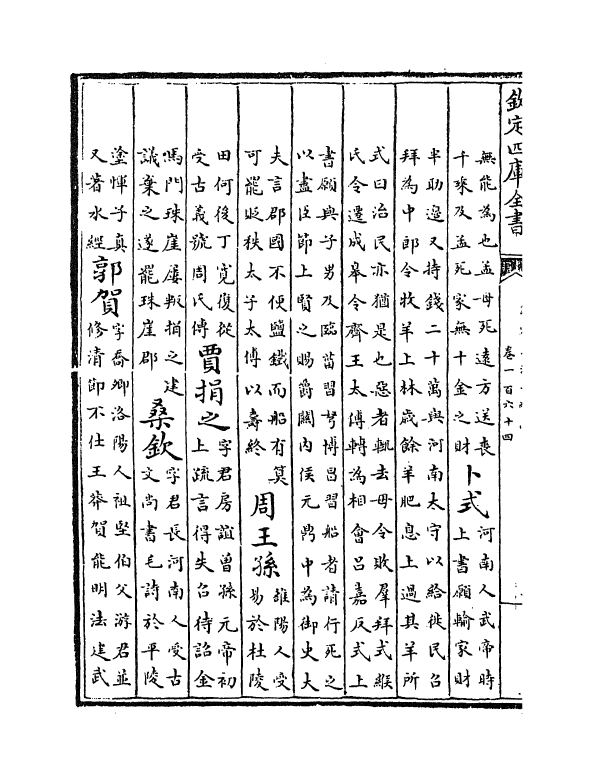 欽定四庫全書
卷一百六十四
無能為也孟母死遠方送喪
千乘及孟死家無十金之財
卜式
河南人武帝時
上書願輸家財
半助邊又持錢二十萬與河南太守以給徙民召
拜為中郎令牧羊上林歳餘羊肥息上過其羊所
式曰治民亦猶是也惡者輒去毋令敗羣拜式緱
氏令遷成臯令齊王太傅轉為相會呂嘉反式上
書願與子男及臨菑習弩博昌習船者請行死之
以盡臣節上賢之賜爵關內侯元鼎中為御史大
夫言郡國不便鹽鐵而船有筭
可罷貶秩太子太傅以壽終
周王孫
雒陽人受
易於杜陵
田何後丁寛復從
受古義號周氏傳
賈捐之
字君房誼曾孫元帝初
上疏言得失召待詔金
馬門珠崖屢叛捐之建
議棄之遂罷珠崖郡
桑欽
字君長河南人受古
文尚書毛詩於平陵
塗惲子真
又著水經
郭賀
字喬卿洛陽人祖堅伯父游君並
修清節不仕王莽賀能明法建武